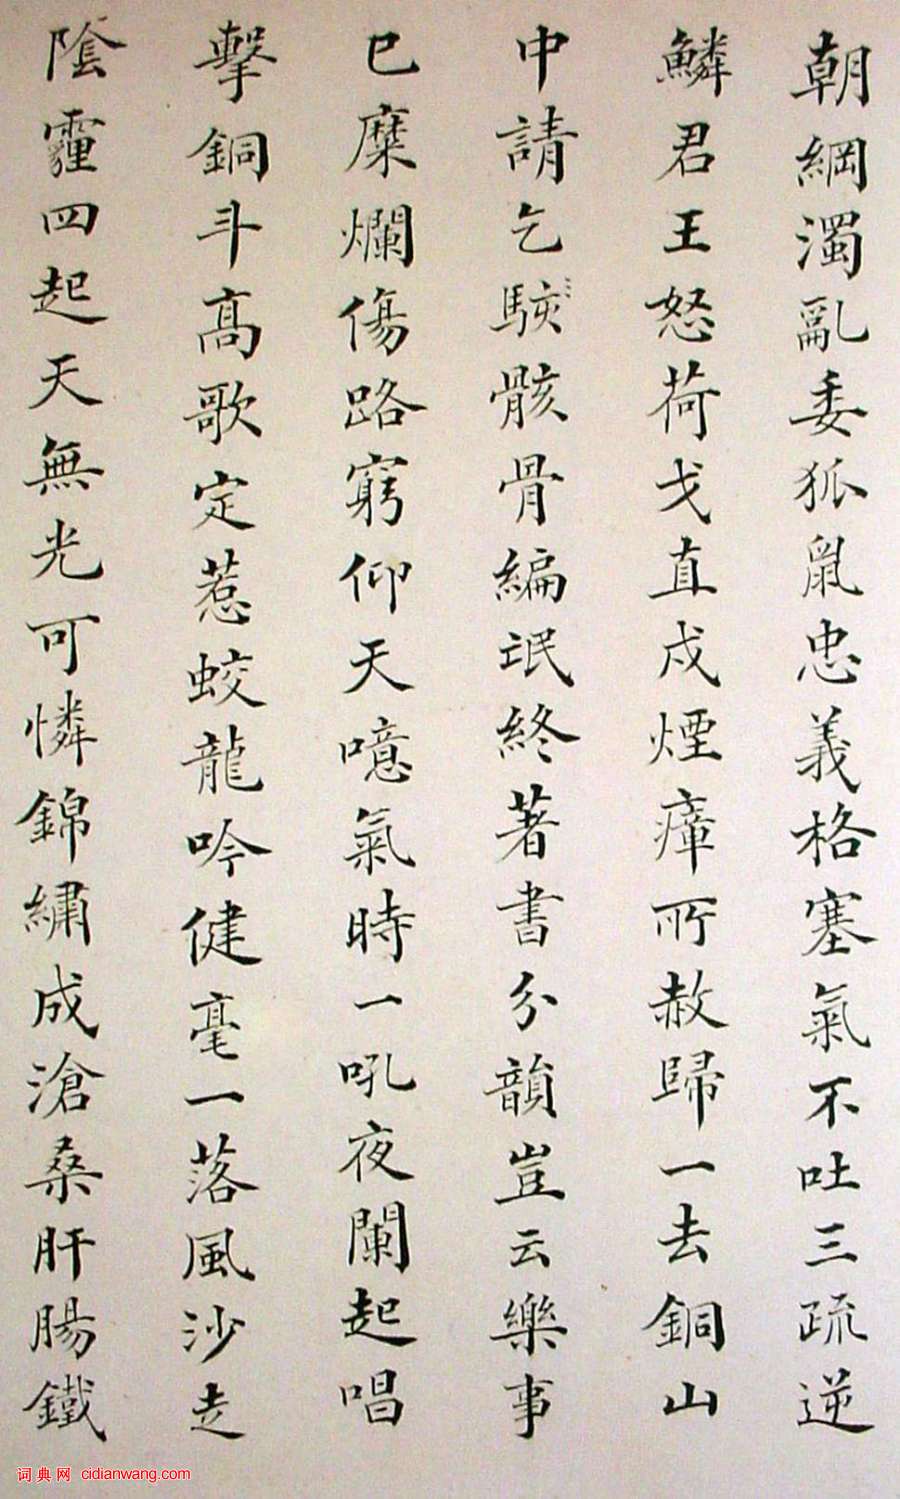 朝綱濁亂委狐鼠忠義格塞氣不吐三疏逆
鱗君王怒荷戈直戍煙瘴所赦歸一去銅山
中請乞駭骸骨編氓終著書分韻豈云樂事
已糜爛傷路窮仰天噫氣時一吼夜闌起唱
擊銅斗髙歌定惹蛟龍吟健毫一落風沙走
陰霾四起天無光可憐錦繡成滄桑肝腸鐵
词典网 cidianwang.com